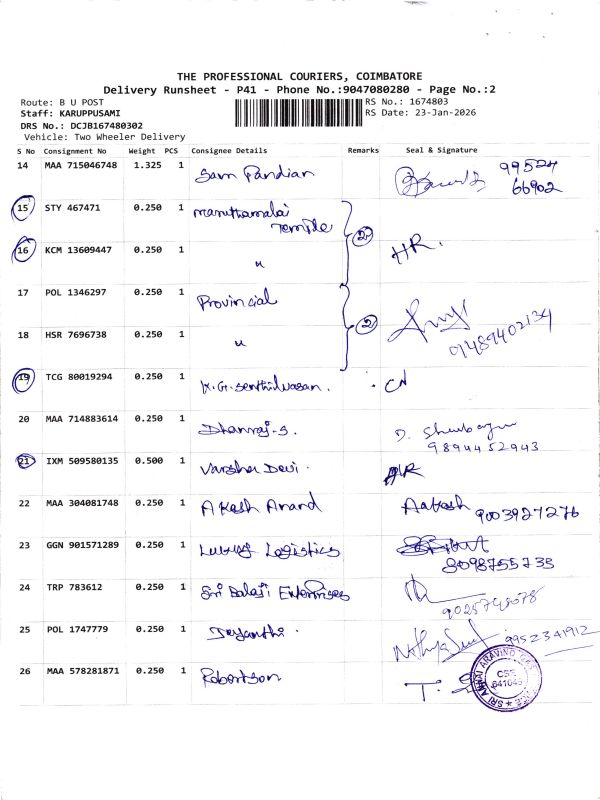 THE PROFESSIONAL COURIERS, COIMBATORE
Delivery Runsheet - P41 - Phone No.:9047080280 - Page No.:2
Route: B U POST
RS No.: 1674803
Staff: KARUPPUSAMI
RS Date: 23-Jan-2026
DRS No.: DCJB167480302
Vehicle: Two Wheeler Delivery
S No Consignment No Weight PCS Consignee Details Remarks Seal & Signature
14 MAA 715046748 1.325 1 Sam Pandian 99524 66902
15 STY 467471 0.250 1 Maruthamalai Temple
2 HR.
16 KCM 13609447 0.250 1 "
17 POL 1346297 0.250 1 Provincial
2 9489402134
18 HSR 7696738 0.250 1 "
19 TCG 80019294 0.250 1 K.G. Senthilvasan.
20 MAA 714883614 0.250 1 Dhanraj-S. D. 9894452943
21 IXM 509580135 0.500 1 Varsha Devi.
22 MAA 304081748 0.250 1 Akash Anand Aakash 9003927276
23 GGN 901571289 0.250 1 Logistics 8098755733
24 TRP 783612 0.250 1 Sri Balaji Enterprises
25 POL 1747779 0.250 1 Jeyanthi. 9952341912
26 MAA 578281871 0.250 1 Robertson
SRI ANNAI ARAVIND
641046